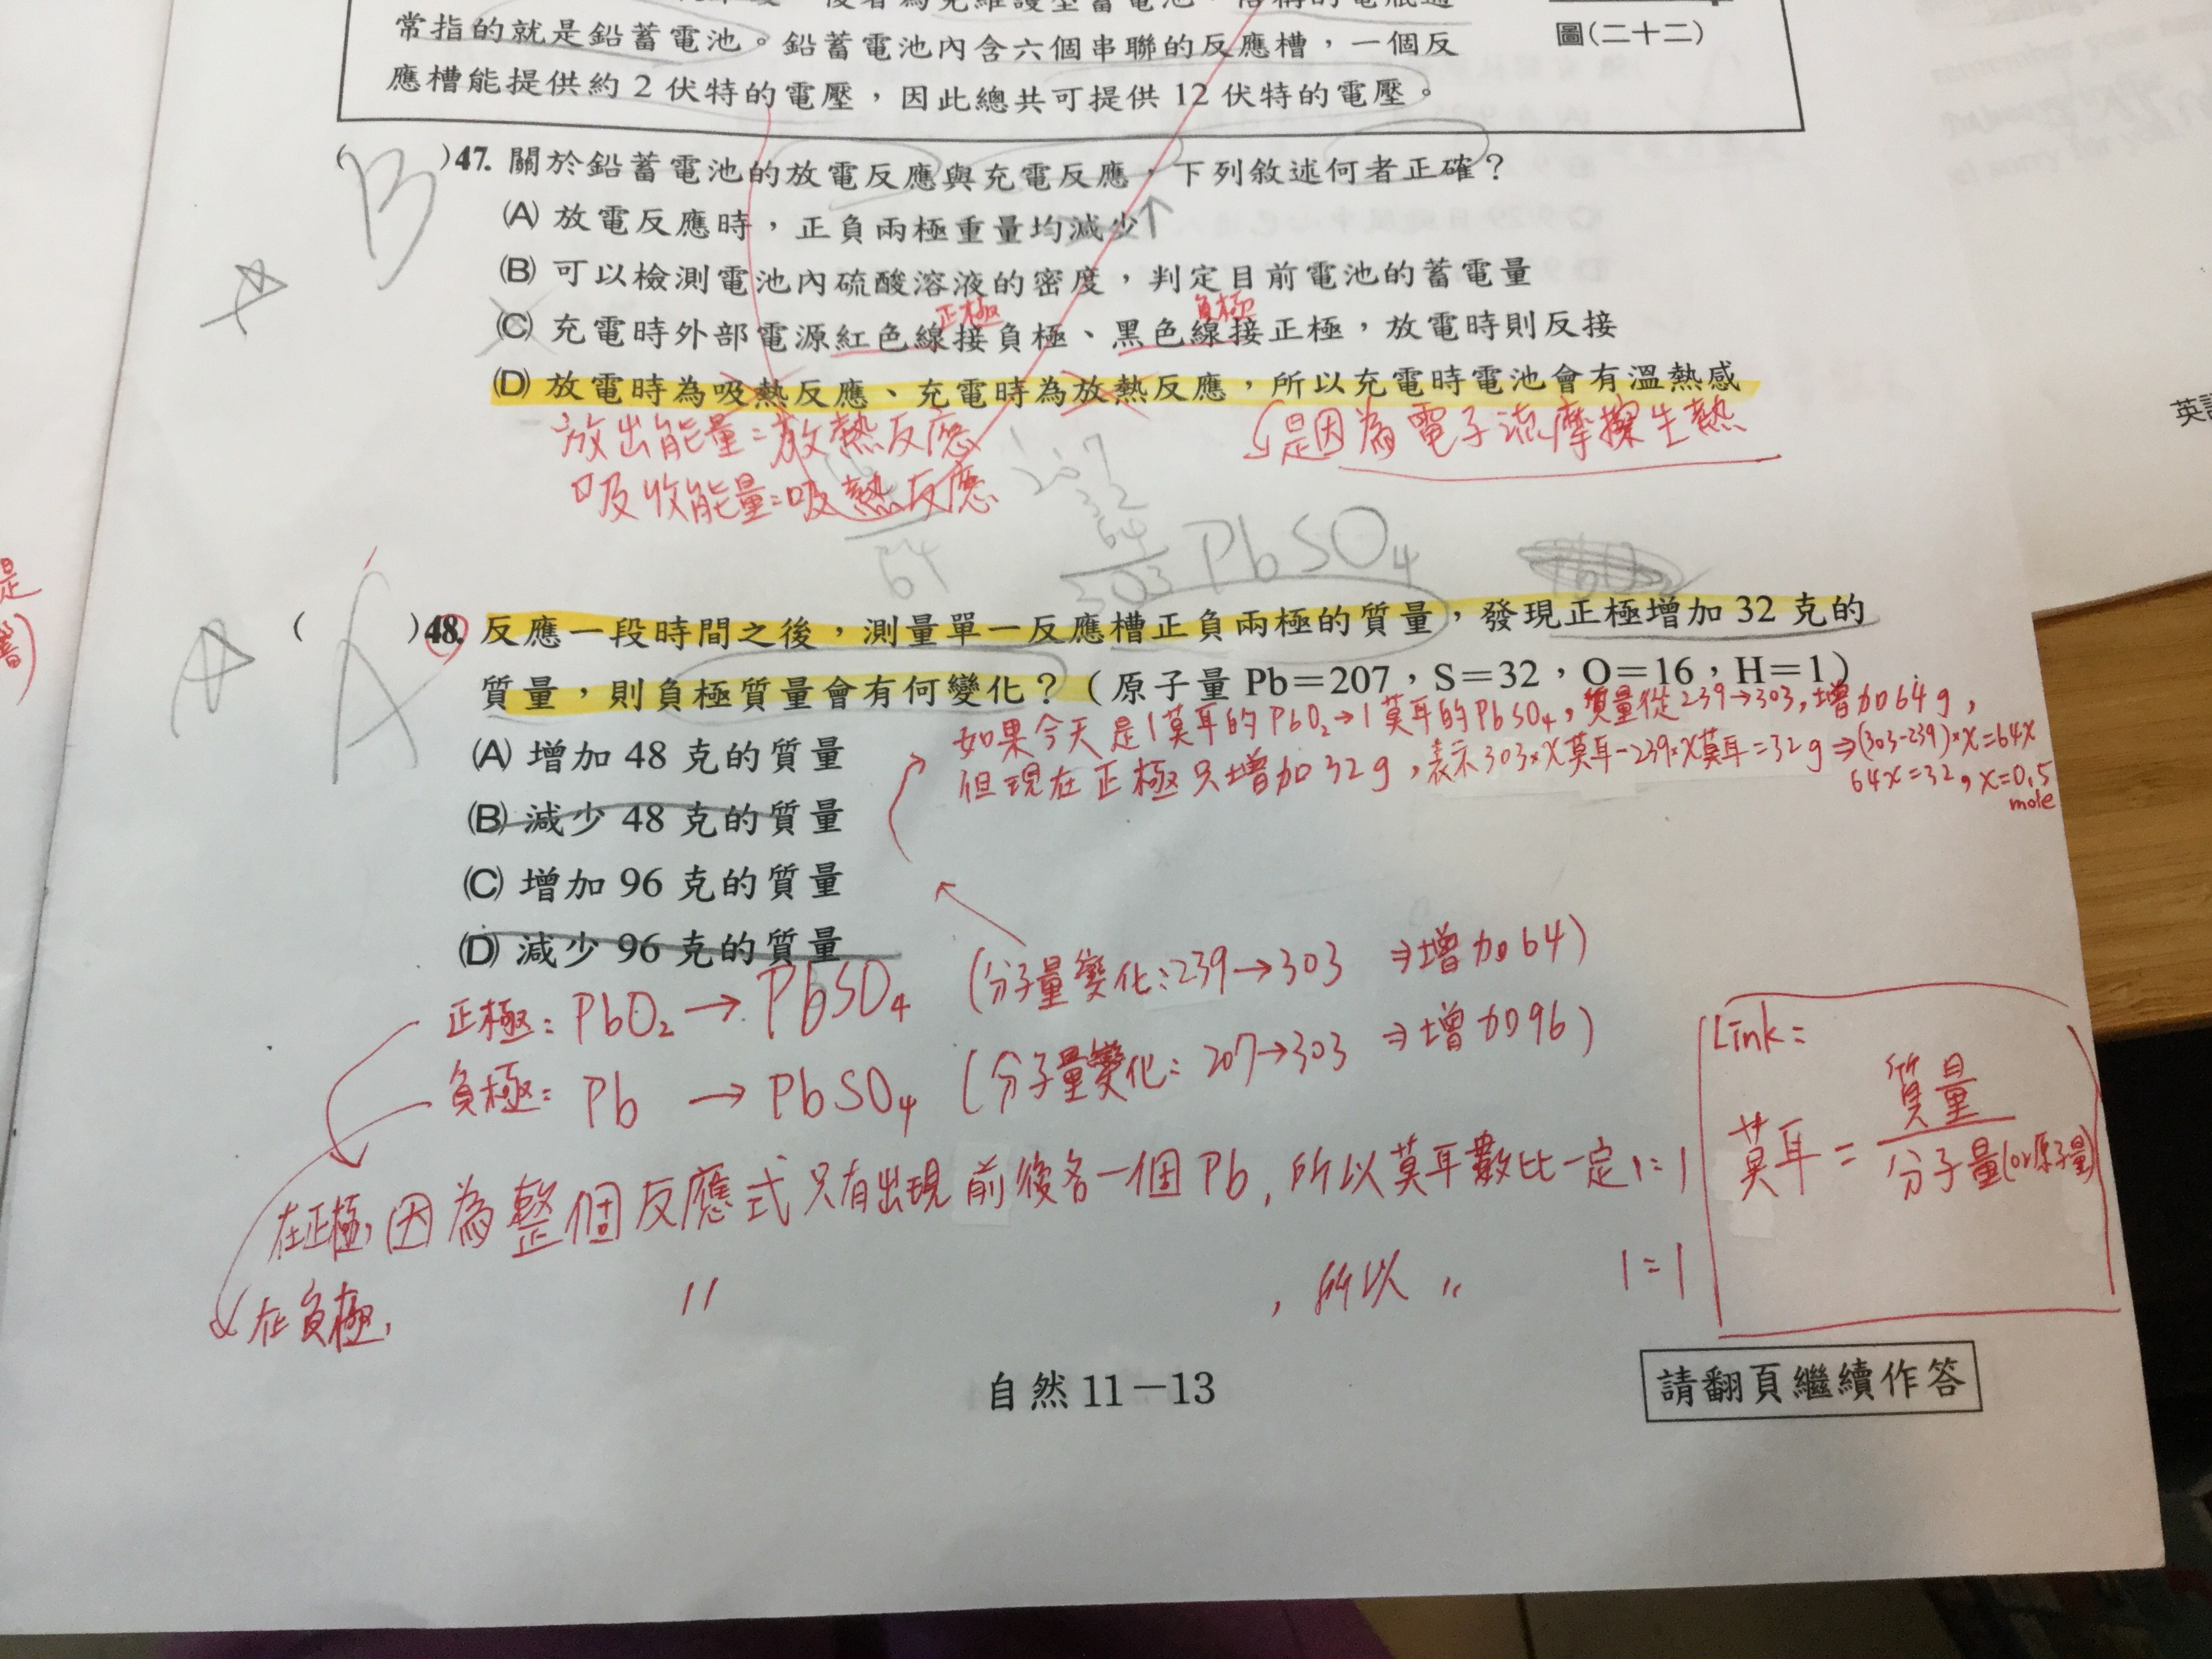 常指的就是鉛蓄電池。鉛蓄電池內含六個串聯的反應槽，一個反
應槽能提供約 2 伏特的電壓，因此總共可提供 12 伏特的電壓。
圖(二十二)
( B )47. 關於鉛蓄電池的放電反應與充電反應，下列敘述何者正確？
(A) 放電反應時，正負兩極重量均減少↑
(B) 可以檢測電池內硫酸溶液的密度，判定目前電池的蓄電量
正極 負極
(C) 充電時外部電源紅色線接負極、黑色線接正極，放電時則反接
(D) 放電時為吸熱反應、充電時為放熱反應，所以充電時電池會有溫熱感
放出能量=放熱反應
是因為電子流摩擦生熱
吸收能量=吸熱反應
207
32
64
303
64
PbSO₄
( A )48. 反應一段時間之後，測量單一反應槽正負兩極的質量，發現正極增加 32 克的
質量，則負極質量會有何變化？（原子量 Pb＝207，S＝32，O＝16，H＝1）
如果今天是1莫耳的PbO₂→1莫耳的PbSO₄，質量從239→303，增加64g，
但現在正極只增加32g，表示303×x莫耳-239×x莫耳=32g⇒(303-239)×x=64x
64x=32，x=0.5
mole
(A) 增加 48 克的質量
(B) 減少 48 克的質量
(C) 增加 96 克的質量
(D) 減少 96 克的質量
正極：PbO₂→PbSO₄ (分子量變化：239→303 ⇒增加64)
負極：Pb →PbSO₄ (分子量變化：207→303 ⇒增加96)
在正極，因為整個反應式只有出現前後各一個Pb，所以莫耳數比一定1=1
在負極， 〃 ，所以 〃 1=1
Link：
莫耳=質量
分子量(or原子量)
自然 11－13
請翻頁繼續作答